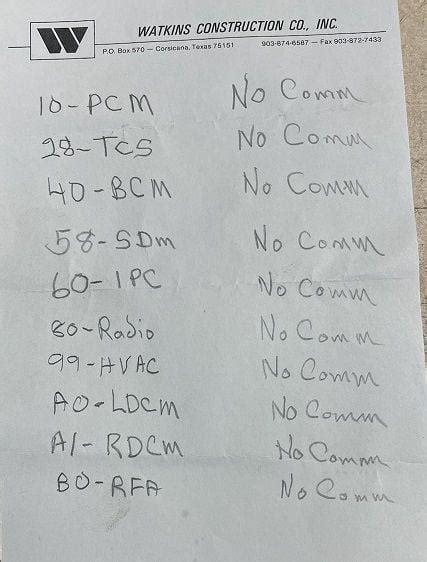 W
WATKINS CONSTRUCTION CO., INC.
P.O. Box 570 — Corsicana, Texas 75151 903-874-6587 — Fax 903-872-7433
10-PCM No Comm
28-TCS No Comm
40-BCM No Comm
58-SDm No Comm
60-IPC No Comm
80-Radio No Comm
99-HVAC No Comm
A0-LDCM No Comm
A1-RDCM No Comm
B0-RFA No Comm